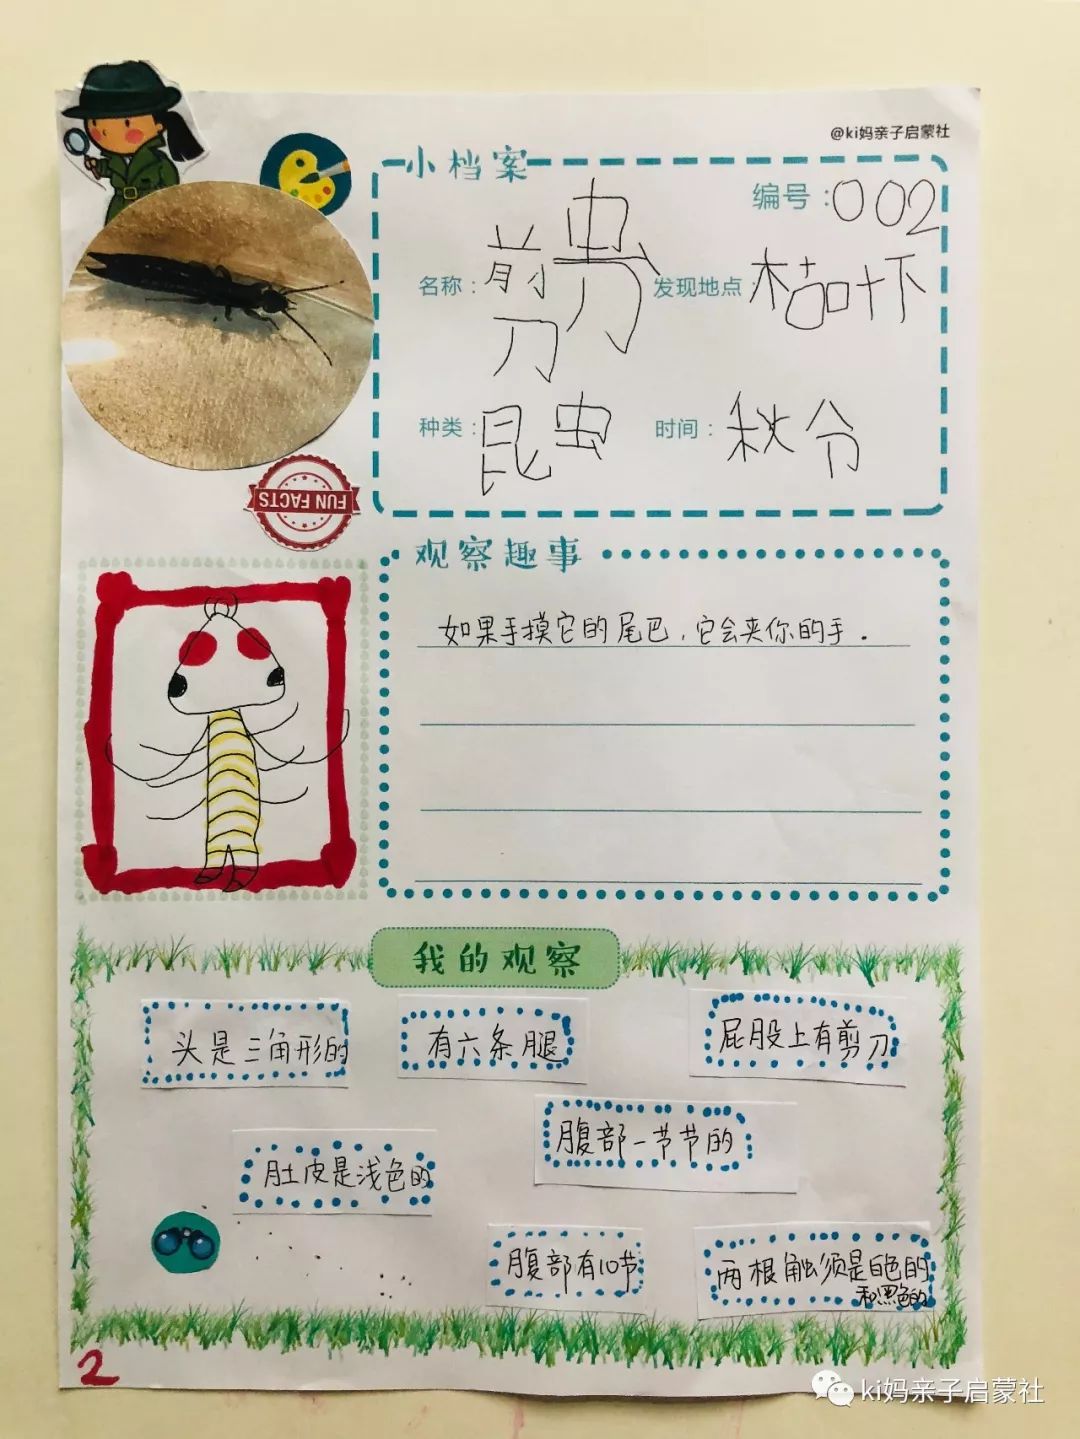 @ki妈亲子启蒙社
小档案
编号：002
名称：剪刀虫
发现地点：枯叶下
种类：昆虫
时间：秋分
FUN FACTS
观察趣事
如果手摸它的尾巴，它会夹你的手.
我的观察
头是三角形的
有六条腿
屁股上有剪刀
腹部一节节的
肚皮是浅色的
腹部有10节
两根触须是白色的
和黑色的
2
ki妈亲子启蒙社